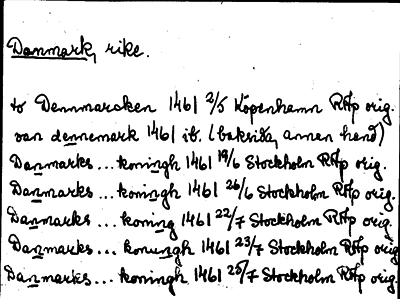 Danmark, rike.
to Dennmarcken 1461 2/5 Köpenhamn RAp orig.
van dennemark 1461 ib. (baksida, annan hand)
Danmarks... koningh 1461 19/6 Stockholm RAp orig.
Danmarks... koningh 1461 26/6 Stockholm RAp orig.
Danmarks... koning 1461 22/7 Stockholm RAp orig.
Danmarks... konungh 1461 23/7 Stockholm RAp orig.
Danmarks... koningh 1461 25/7 Stockholm RAp orig.